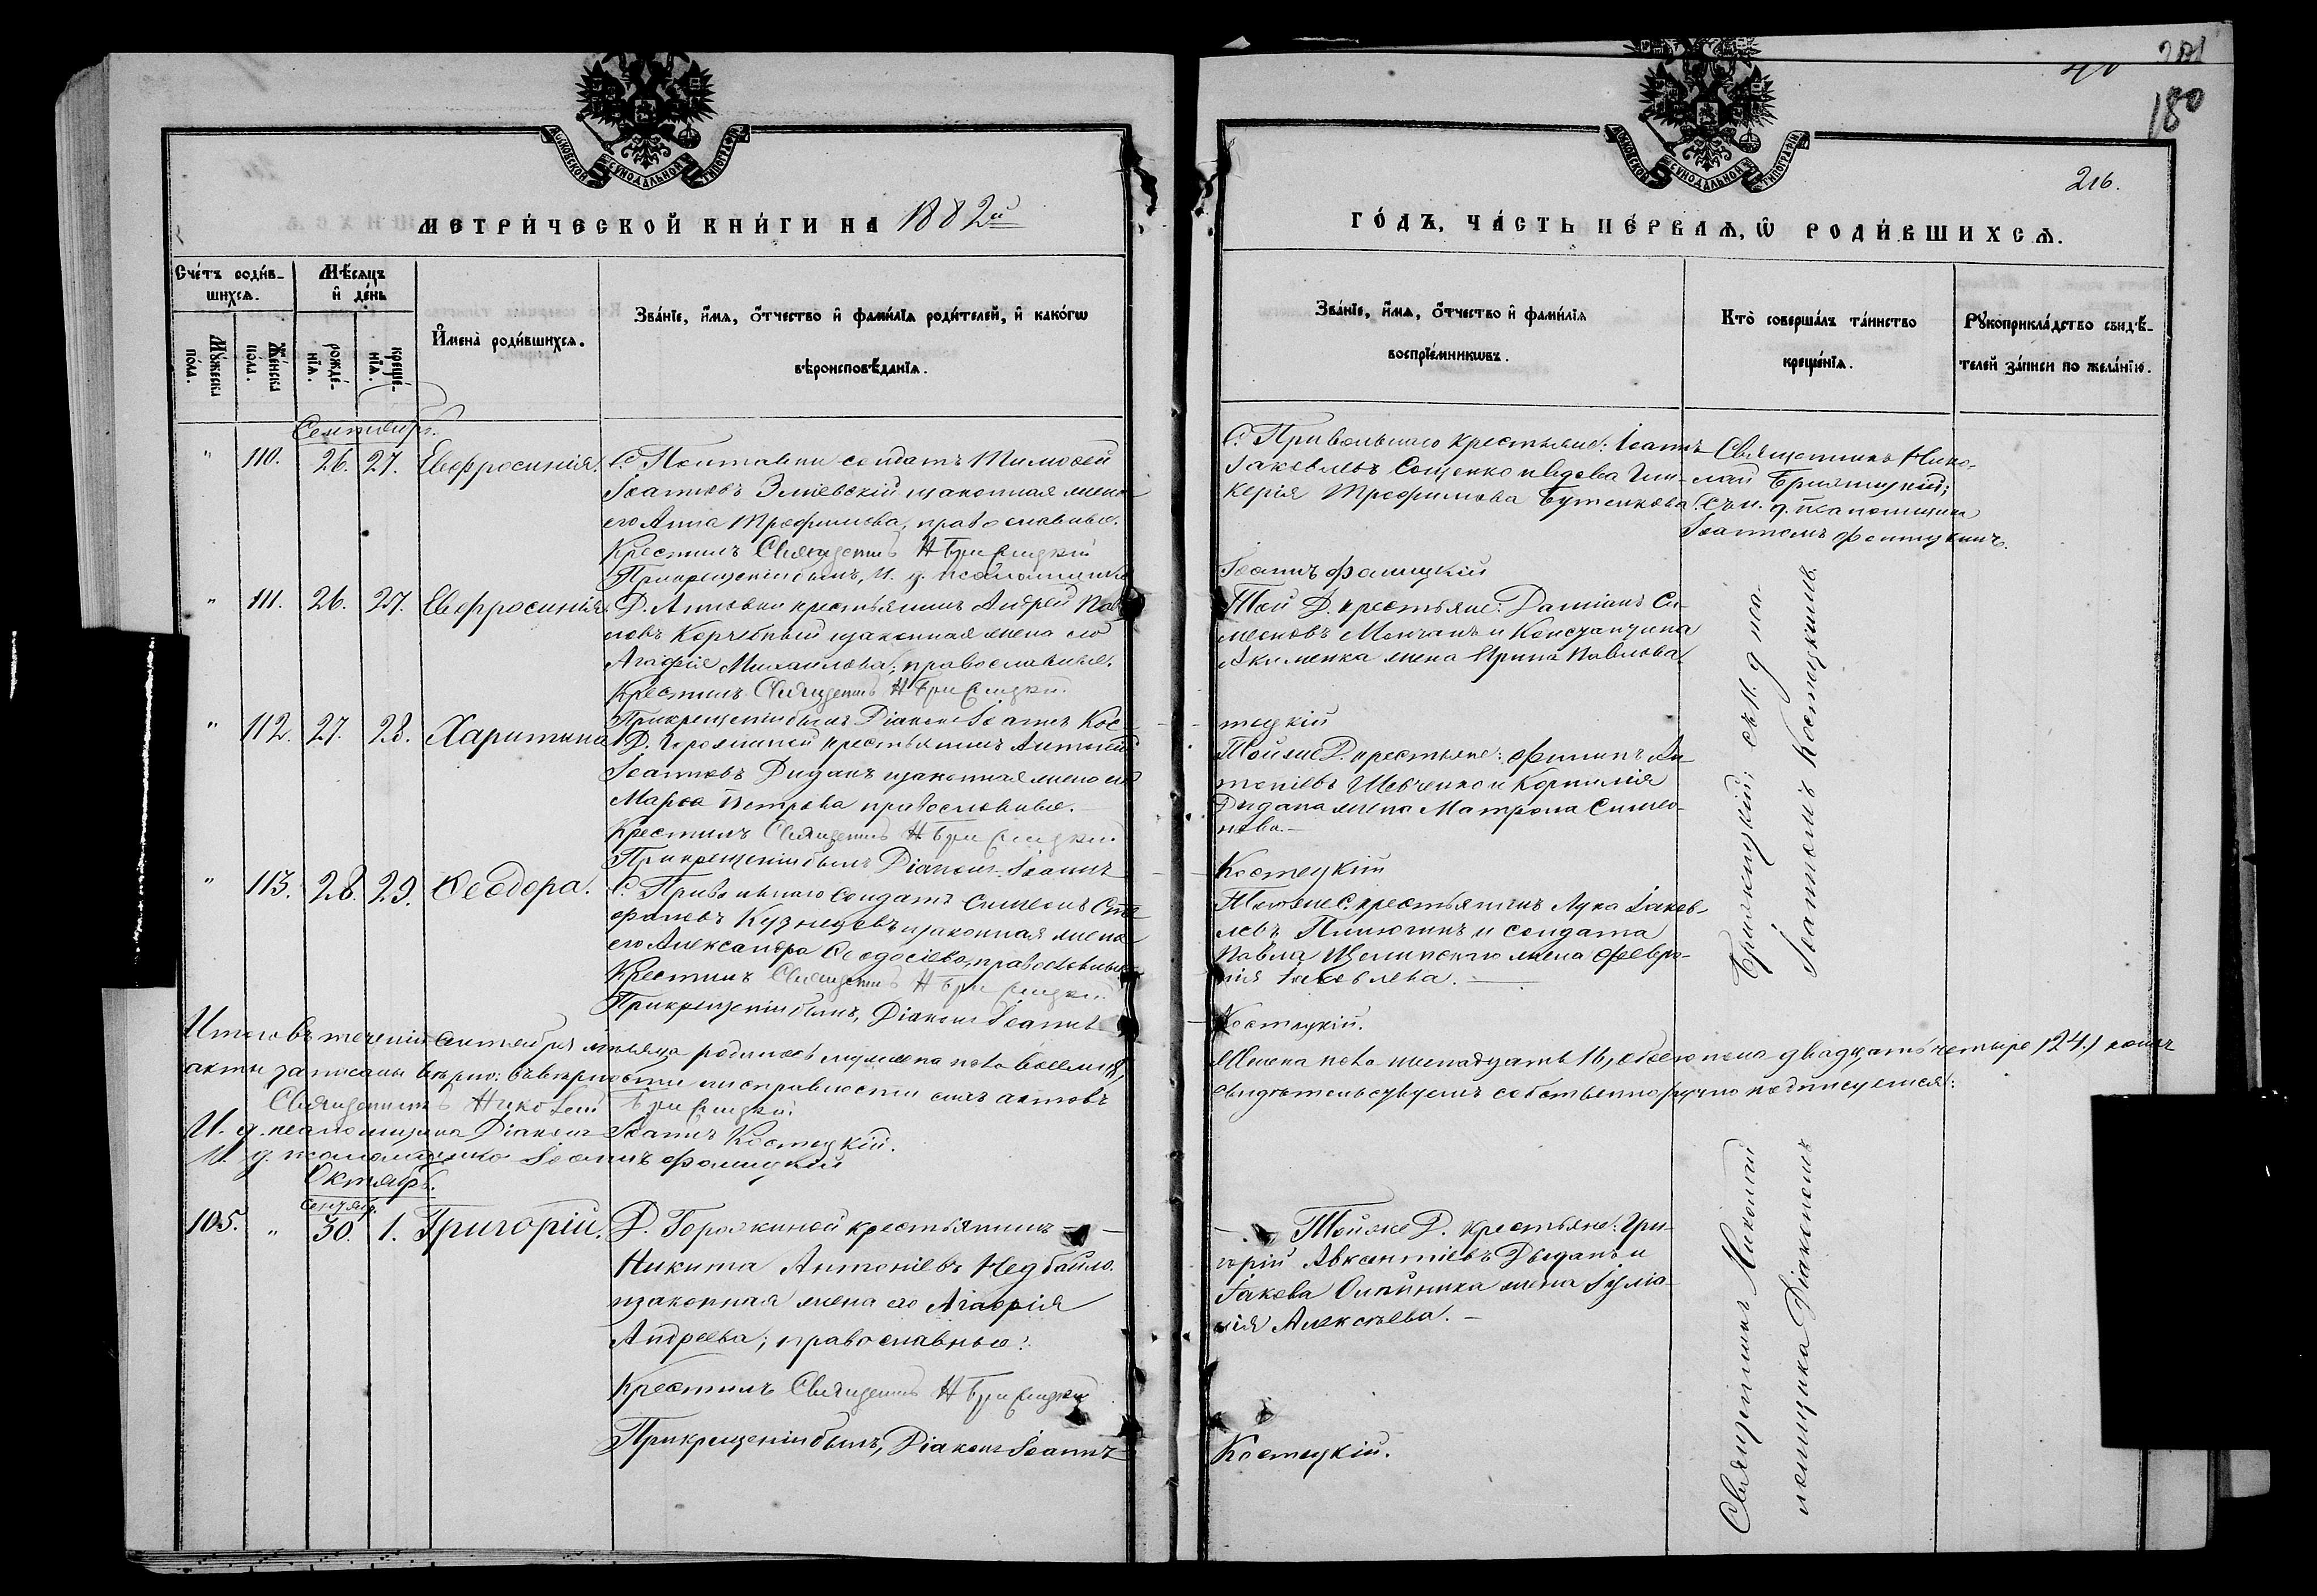 МОСКОВСКОЙ СѴНОДАЛЬНОЙ ТИПОГРАФІИ
МЕТРИ́ЧЕСКОЙ КНИ́ГИ НА 1882й
Сче́тъ роди́в-
шихсѧ.
Мѣ́сяцъ
и҆ де́нь
Мꙋ́жеска
по́ла.
Же́нска
по́ла.
рожде́-
нїѧ.
креще́-
нїѧ.
И҆мена̀ роди́вшихсѧ.
Зва́нїе, и҆́мѧ, ѻ҆́тчество и҆ фами́лїѧ роди́телей, и҆ како́гѡ
вѣроисповѣ́данїѧ.
Сентябрь.
" 110. 26. 27. Евфросинія.
С. Полтавки солдатъ Тимоѳей
Іоанновъ Зміевскій изаконная жена
его Анна Трофимова, православные.
Крестилъ Священникъ Н Бри
При крещеніи былъ, И. д. псаломщика
" 111. 26. 27. Евфросинія.
Д. Анновки крестьянинъ Андрей Пав-
ловъ Корчебный изаконная жена его
Агафія Михаилова; православные.
Крестилъ Священникъ Н Бри
При крещеніи былъ Діаконъ Іоаннъ Кос-
" 112. 27. 28. Харитина
крестьянинъ Антоній
Іоанновъ Диданъ изаконная жена его
Марѳа Петрова православные.
Крестилъ Священникъ Н Бри
При крещеніи былъ Діаконъ Іоаннъ
" 113. 28. 29. Ѳеодора.
С. Привольнаго солдатъ Симеонъ Сте-
фановъ Кузнецовъ изаконная жена
его Александра Ѳеодосіева, православные
Крестилъ Священникъ Н Бри
При крещеніи былъ, Діаконъ Іоаннъ
Итого въ теченіи Сентября мѣсяца родилось мужеска пола восемь 8,
акты записаны вѣрно: въ вѣрности и исправности сихъ актовъ
Священникъ Николай
И. д. псаломщика Діаконъ Іоаннъ Костецкій.
И. д. псаломщика Іоаннъ
Октябрь.
сентяб.
105. " 30. 1. Григорій.
Д. Горожкиной крестьянинъ
Никита Антоніевъ Недбайло.
изаконная жена его Агафія
Андреева; православные:
Крестилъ Священникъ Н Бри
При крещеніи былъ, Діаконъ Іоаннъ
180
216.
МОСКОВСКОЙ СѴНОДАЛЬНОЙ ТИПОГРАФІИ
ГО́ДЪ, ЧА́СТЬ ПЕ́РВАѦ, Ѡ҆ РОДИ́ВШИХСѦ.
Зва́нїе, и҆́мѧ, ѻ҆́тчество и҆ фами́лїѧ
воспрїе́мникѡвъ.
Кто̀ соверша́лъ та́инство
креще́нїѧ.
Рꙋкоприкла́дство свидѣ́-
телей за́писи по жела́нїю.
С. Привольнаго крестьяне: Іоаннъ
Іаковлевъ Сощенко и вдова Гли-
керія Трофимова Бутенкова.
Священникъ Нико-
лай
съ и. д. псаломщика
Іоанномъ
Іоаннъ
Той Д. крестьяне: Даміанъ Си-
меоновъ Молчанъ и Константина
Акименка жена Ирина Павлова.
тецкій
Той же Д. крестьяне: Филипъ Ан-
тоніевъ Шевченко и Корнилія
Дидана жена Матрона Симео-
нова.
Костецкій
Того же С. крестьянинъ Лука Іаков-
левъ и солдата
Павла жена Февро-
нія Іаковлева.
Костецкій.
съ И. д пса-
Іоанномъ Костецкимъ.
Женска пола шестнадцать 16, обоего пола двадцать четыре (24.) коихъ
свидѣтельствуемъ собственноручно подписуемся:
Той же Д. крестьяне: Гри-
горій Авксентіевъ Дыданъ и
Іакова Олейника жена Іуліа-
нія Алексѣева.
Костецкій.
Священникъ Николай
ломщика Діакономъ